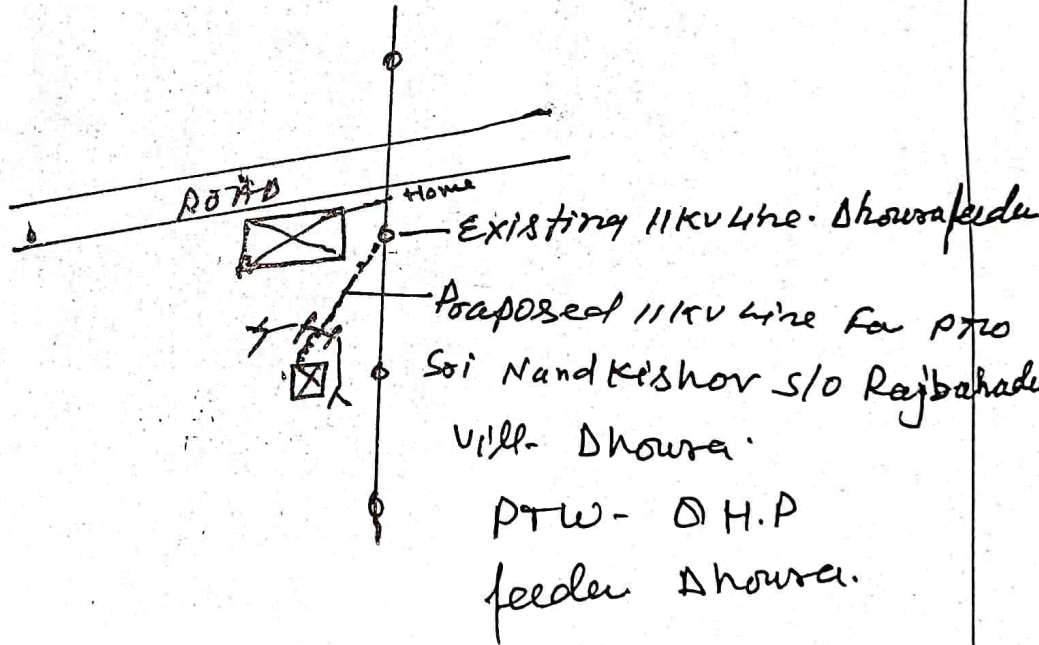 ROAD
Home
Existing 11KV Line. Dhourafeede
Proposed 11KV Line For PTW
Sri Nandkishor S/O Rajbahadu
Vill- Dhoura.
PTW- H.P
feeder Dhoura.